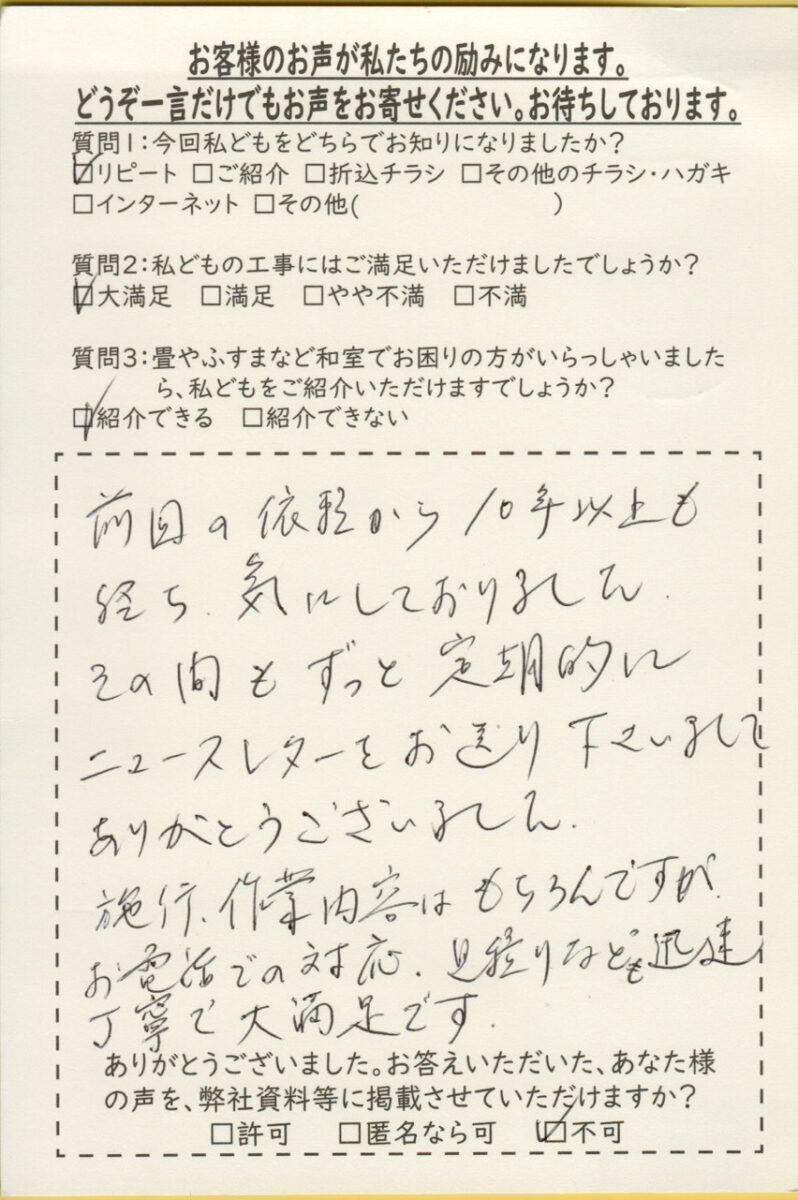 お客様のお声が私たちの励みになります。
どうぞ一言だけでもお声をお寄せください。お待ちしております。
質問1:今回私どもをどちらでお知りになりましたか?
☑リピート □ご紹介 □折込チラシ □その他のチラシ・ハガキ
□インターネット □その他( )
質問2:私どもの工事にはご満足いただけましたでしょうか?
☑大満足 □満足 □やや不満 □不満
質問3:畳やふすまなど和室でお困りの方がいらっしゃいました
ら、私どもをご紹介いただけますでしょうか?
☑紹介できる □紹介できない
前回の依頼から10年以上も
経ち、気にしておりました。
その間もずっと定期的に
ニュースレターをお送り下さいまして
ありがとうございました。
施行、作業内容はもちろんですが、
お電話での対応、見積りなども迅速
丁寧で大満足です。
ありがとうございました。お答えいただいた、あなた様
の声を、弊社資料等に掲載させていただけますか?
□許可 □匿名なら可 ☑不可